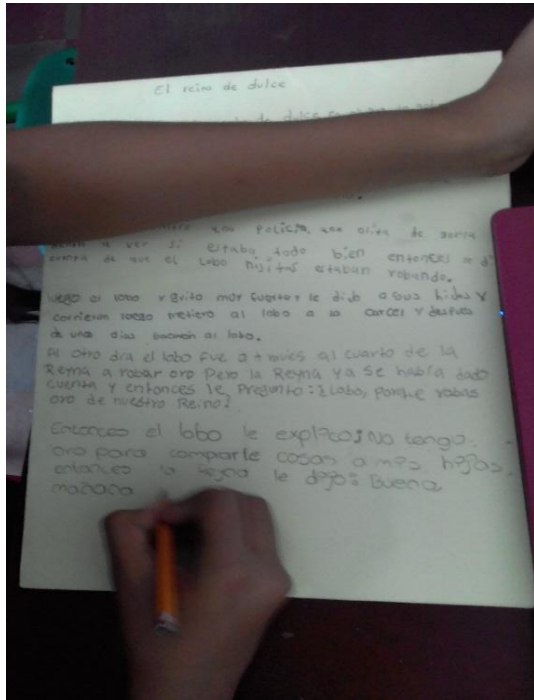 El reino de dulce
de dulce
una POLICIA, una osita de goma
a ver si estaba todo bien entonces se d
cuenta de que el lobo hijitos estaban robando.
Luego el lobo grito muy fuerte y le dijo a sus hijos y
corrieron luego metiero al lobo a la carcel y despues
de unos dias sacaron al lobo.
Al otro dia el lobo fue a traves al cuarto de la
Reyna a robar oro Pero la Reyna ya se había dado
cuenta y entonces le Pregunto: ¿Lobo, porque robas
oro de nuestro Reino?
Entonces el lobo le explico: No tengo
oro para comprarle cosas a mis hijos,
entonces la Reyna le dijo: Buena
mañana